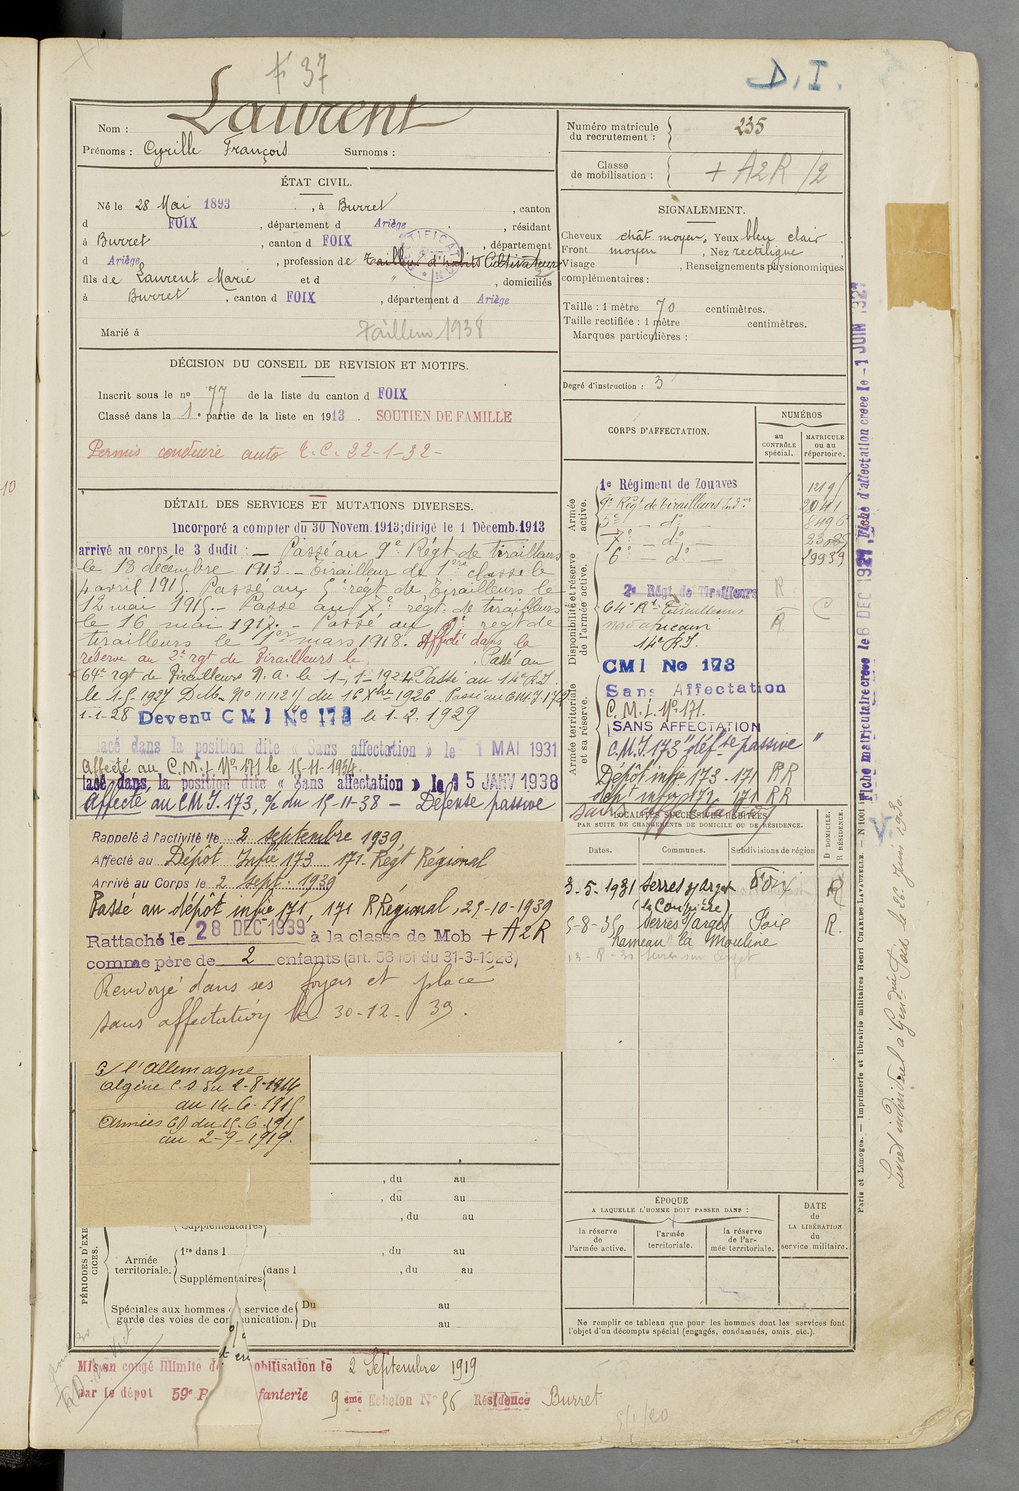 F 37
D. I.
Nom : Laurent
Prénoms : Cyrille François Surnoms :
Numéro matricule du recrutement : 235
Classe de mobilisation : + A2R /2
ÉTAT CIVIL.
Né le 28 Mai 1893, à Burret, canton
d FOIX, département d Ariège, résidant
à Burret, canton d FOIX, département
d Ariège, profession de tailleur d'habits Cultivateur
fils de Laurent Marie et d , domiciliés
à Burret, canton d FOIX, département d Ariège
Marié à
Tailleur 1938
SIGNALEMENT.
Cheveux chât moyen. Yeux bleu clair
Front moyen, Nez rectiligne
Visage , Renseignements physionomiques
complémentaires :
Taille : 1 mètre 70 centimètres.
Taille rectifiée : 1 mètre centimètres.
Marques particulières :
Degré d'instruction : 3
DÉCISION DU CONSEIL DE REVISION ET MOTIFS.
Inscrit sous le no 77 de la liste du canton d FOIX
Classé dans la 1e partie de la liste en 1913. SOUTIEN DE FAMILLE
Permis conduire auto T.C. 22-1-32-
DÉTAIL DES SERVICES ET MUTATIONS DIVERSES.
Incorporé a compter du 30 Novem. 1913; dirigé le 1 Décemb. 1913
arrivé au corps le 3 dudit : — Passé au 9e Régt de tirailleurs
le 13 décembre 1913. — Tirailleur de 1ère classe le
4 avril 1915. Passé au 5e régt de tirailleurs le
12 mai 1915. — Passé au 7e régt de tirailleurs
le 16 mai 1917. — Passé au 6e régt de
tirailleurs le 1er mars 1918. Affecté dans la
réserve au 2e rgt de Tirailleurs le . Passé au
64e rgt de Tirailleurs N.A. le 1-1-1924. Passé au 14e R.I.
le 1.5.1927 D.M. No 11112 du 16 Xbre 1926. Passé au CMI 173
1-1-28 Devenu CMI No 173 le 1.2.1929
lacé dans la position dite « Sans affectation » le 1 MAI 1931
Affecté au C.M.I. No 171 le 15-11-1934.
lacé dans la position dite « Sans affectation » le 15 JANV 1938
Affecté au CMI. 173, % du 15-11-38 — Défense passive
Rappelé à l'activité le 2 septembre 1939
Affecté au Dépôt Infie 173 171. Régt Régional
Arrivé au Corps le 2 sept. 1939
Passé au dépôt infie 171, 171 R Régional, 25-10-1939
Rattaché le 28 DEC 1939 à la classe de Mob + A2R
comme père de 2 enfants (art. 58 loi du 31-3-1928)
Renvoyé dans ses foyers et placé
sans affectation le 30-12-39.
C/ l'Allemagne
Algérie C.S du 2-8-1914
au 14-6-1915
Armées CD du 15.6.1915
au 2-9-1919.
CORPS D'AFFECTATION.
NUMÉROS
au CONTRÔLE spécial.
MATRICULE ou au répertoire.
Armée active.
1e Régiment de Zouaves
9e Régt de Tirailleurs Ind.nes 2041
5e — do — 8496
7e — do —
6e — do — 29939
Disponibilité et réserve de l'armée active.
2e Régt de Tirailleurs R
64e Rt Tirailleurs
nord africain R
14e R.I.
Armée territoriale et sa réserve.
CMI No 173
Sans Affectation
C.M.I. No 171.
SANS AFFECTATION
C.M.I. 173 "défse passive"
Dépôt infie 173 - 171 RR
dept infie 172 171 RR
sans affectation
LOCALITÉS SUCCESSIVES HABITÉES
PAR SUITE DE CHANGEMENTS DE DOMICILE OU DE RÉSIDENCE.
Dates. Communes. Subdivisions de région D DOMICILE. R RÉSIDENCE.
3-5-1931 Serres s/ Arget Foix R
5-8-35 Serres s/ arget Foix R.
hameau la Mouline
ÉPOQUE
A LAQUELLE L'HOMME DOIT PASSER DANS :
la réserve de l'armée active.
l'armée territoriale.
la réserve de l'armée territoriale.
DATE de LA LIBÉRATION du service militaire.
Ne remplir ce tableau que pour les hommes dont les services font
l'objet d'un décompte spécial (engagés, condamnés, omis, etc.).
, du au
, du au
, du au
PÉRIODES D'EXERCICES.
Supplémentaires
Armée territoriale. 1re dans l , du au
Supplémentaires dans l , du au
Spéciales aux hommes service de garde des voies de communication. Du au
Du au
Mis en congé illimité de obilisation le 2 Septembre 1919
par le dépot 59e fanterie 9 eme Echelon No 56 Résidence Burret
Fiche matriculaire créée le 6 DEC 1921, Fiche d'affectation créée le -1 JUIN 1927
Paris et Limoges. — Imprimerie et librairie militaires Henri CHARLES-LAVAUZELLE. — N 1001